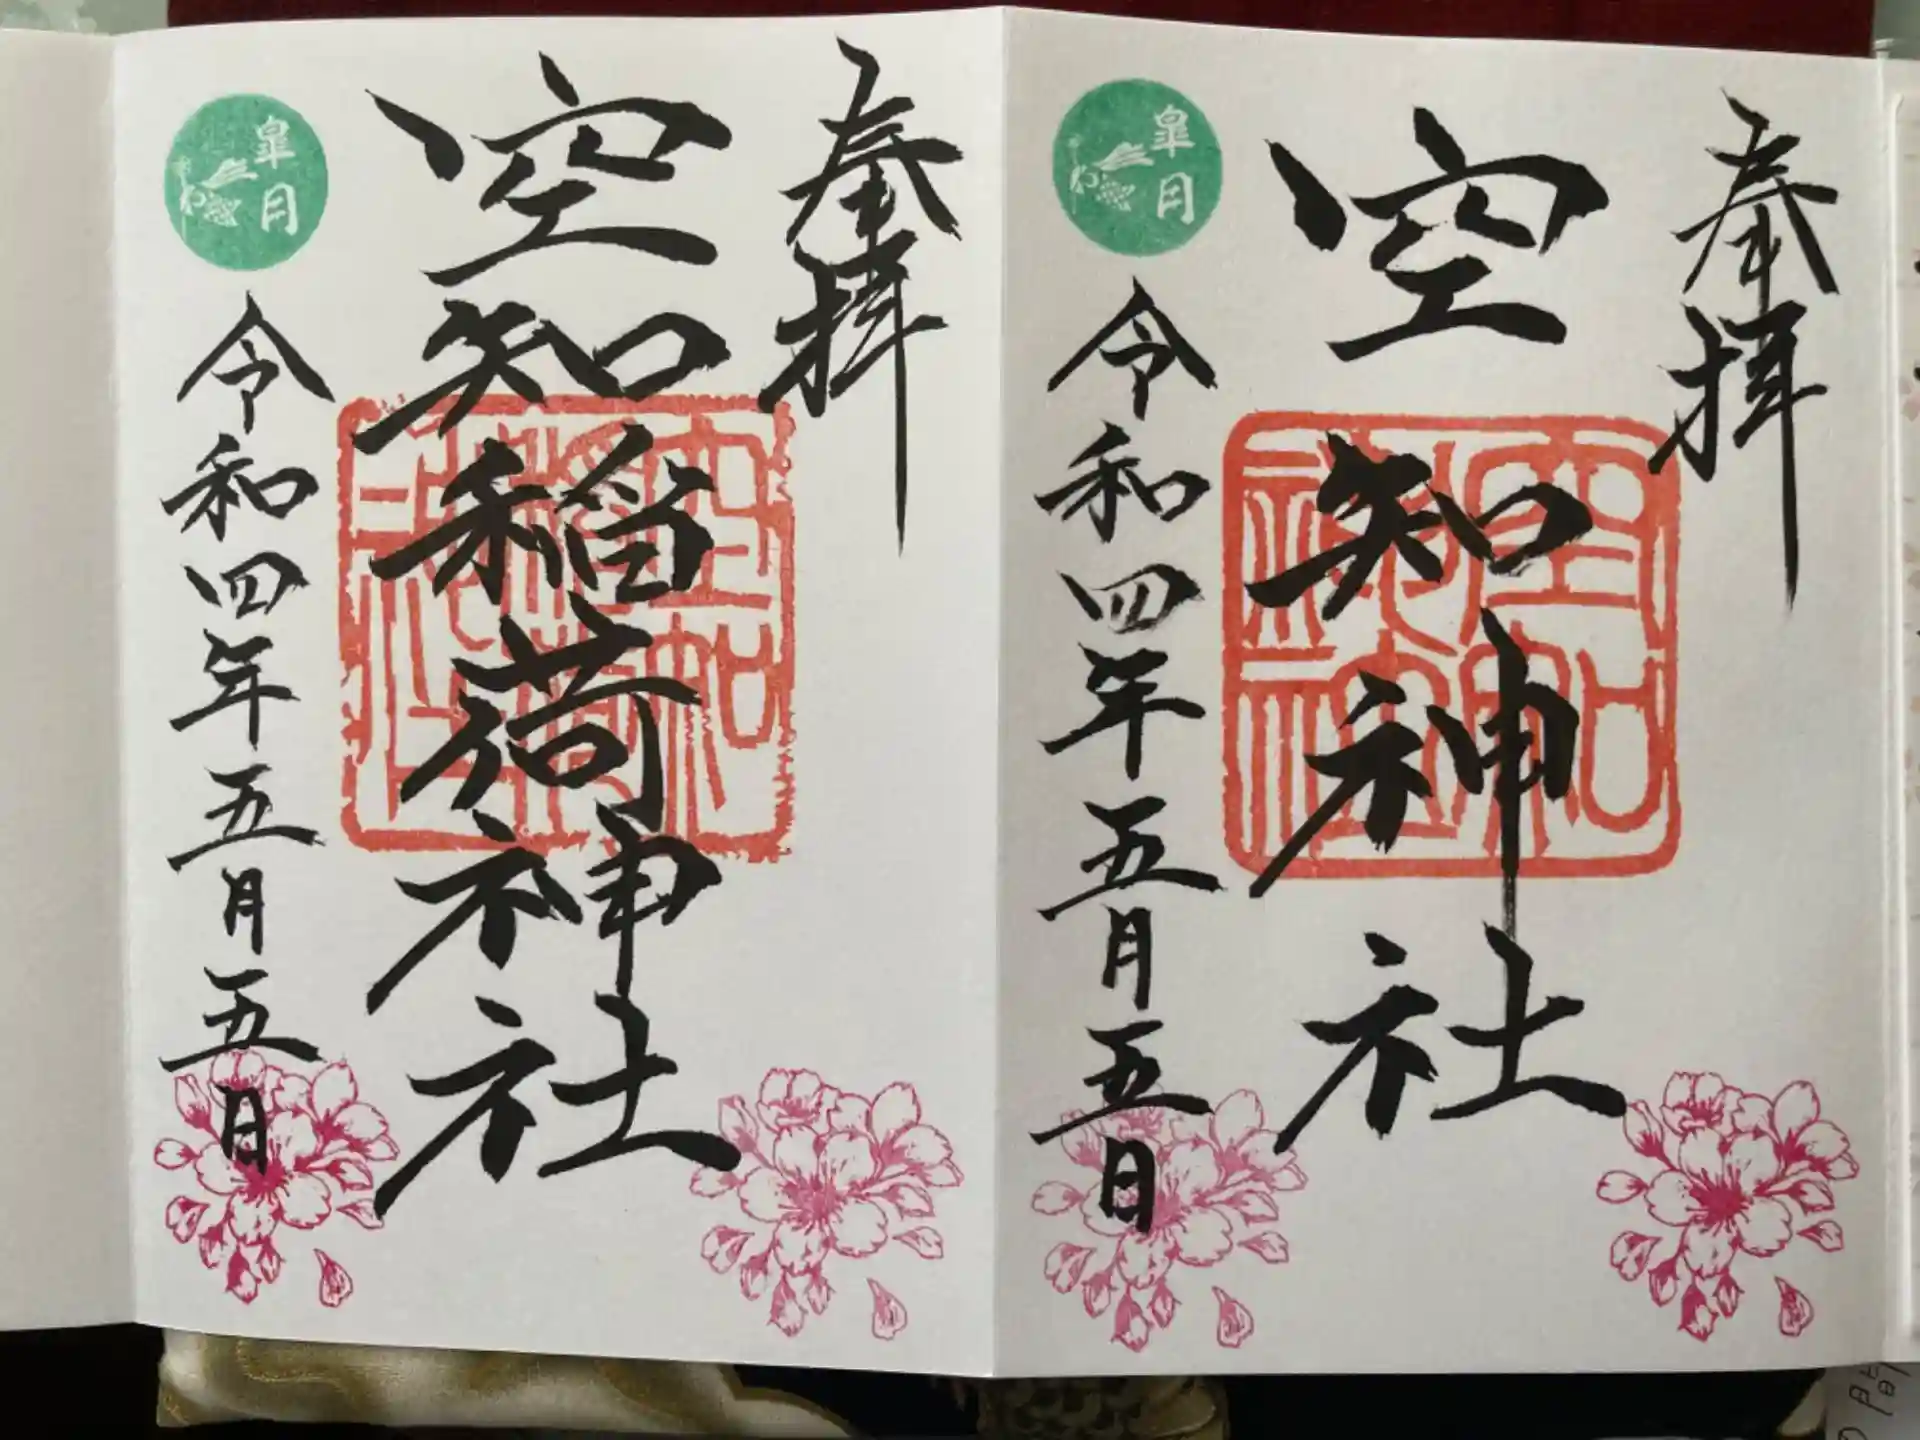 奉拝
空知神社
令和四年五月五日
皐月
奉拝
空知稲荷神社
令和四年五月五日
皐月